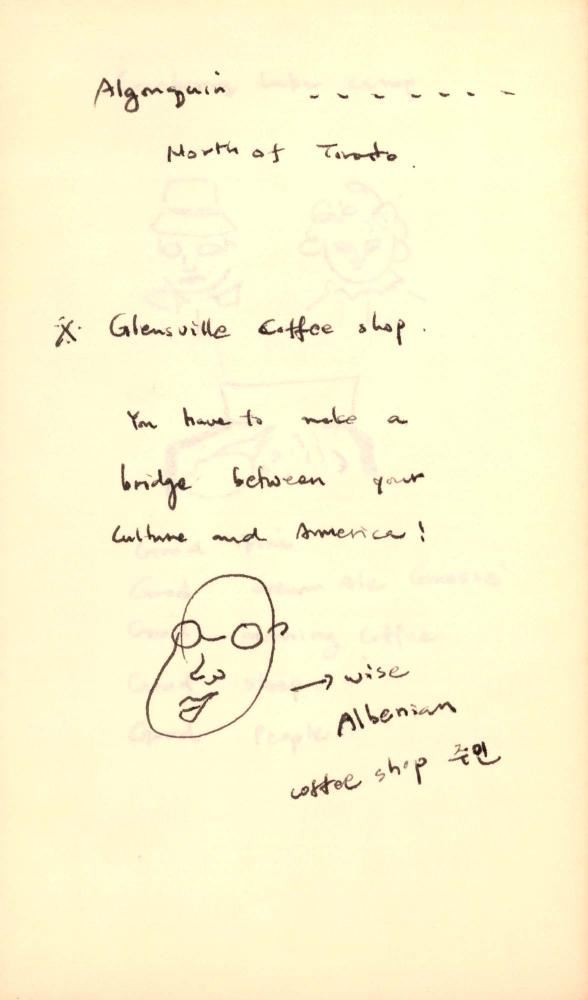 Algonquin - - - - - - -
North of Toronto.
※ Glensville Coffee shop.
You have to make a
bridge between your
Culture and America!
→ wise
Albenian
coffee shop 주인